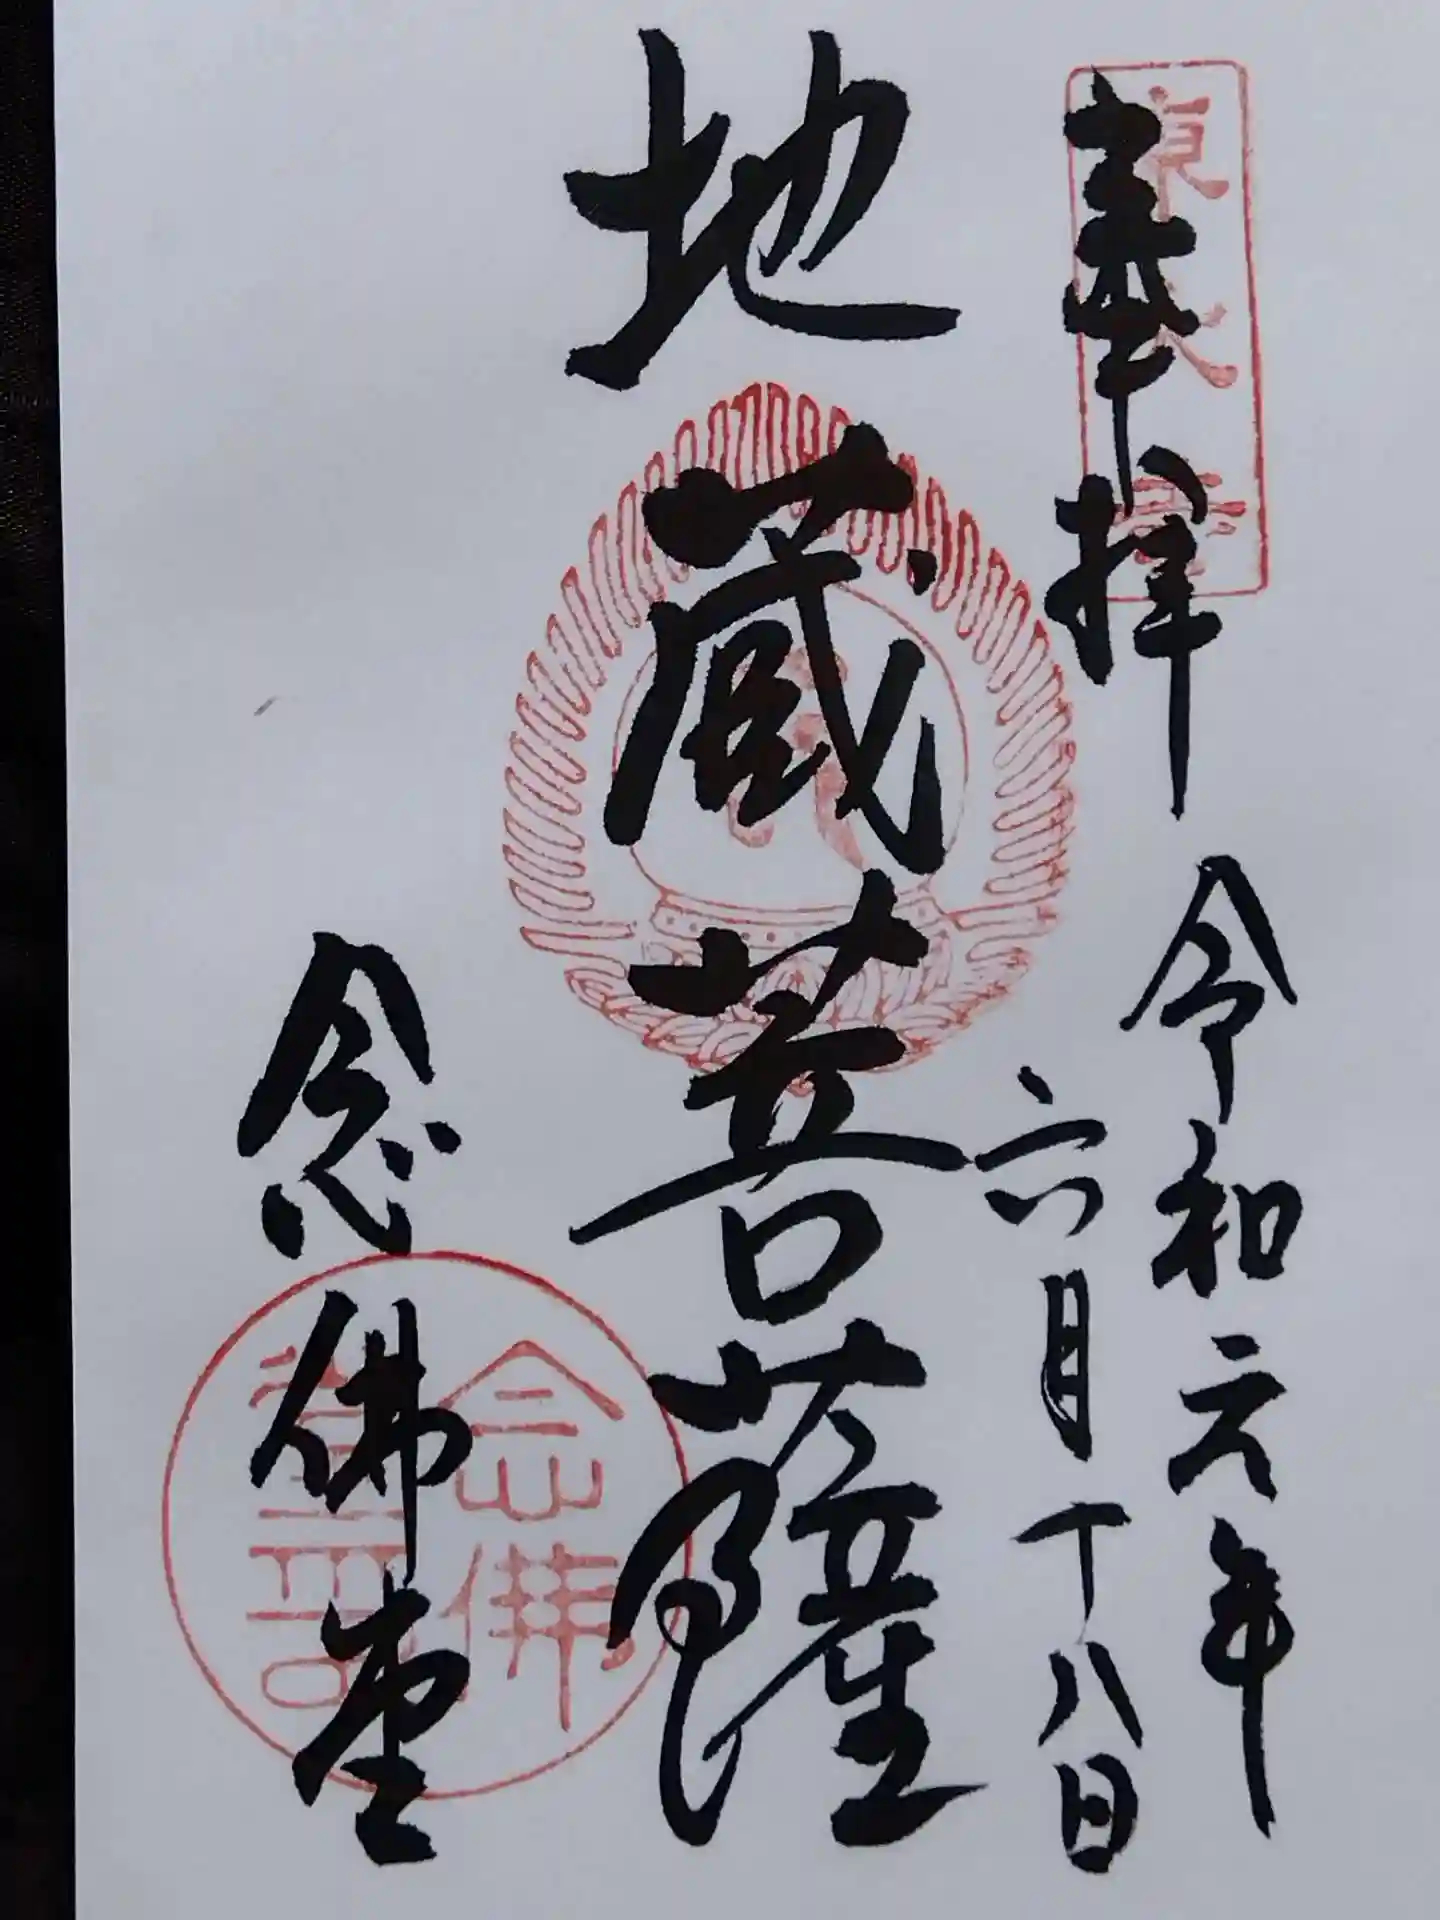 奉拝
令和六年
六月十八日
地蔵菩薩
念佛堂
東大寺
念佛